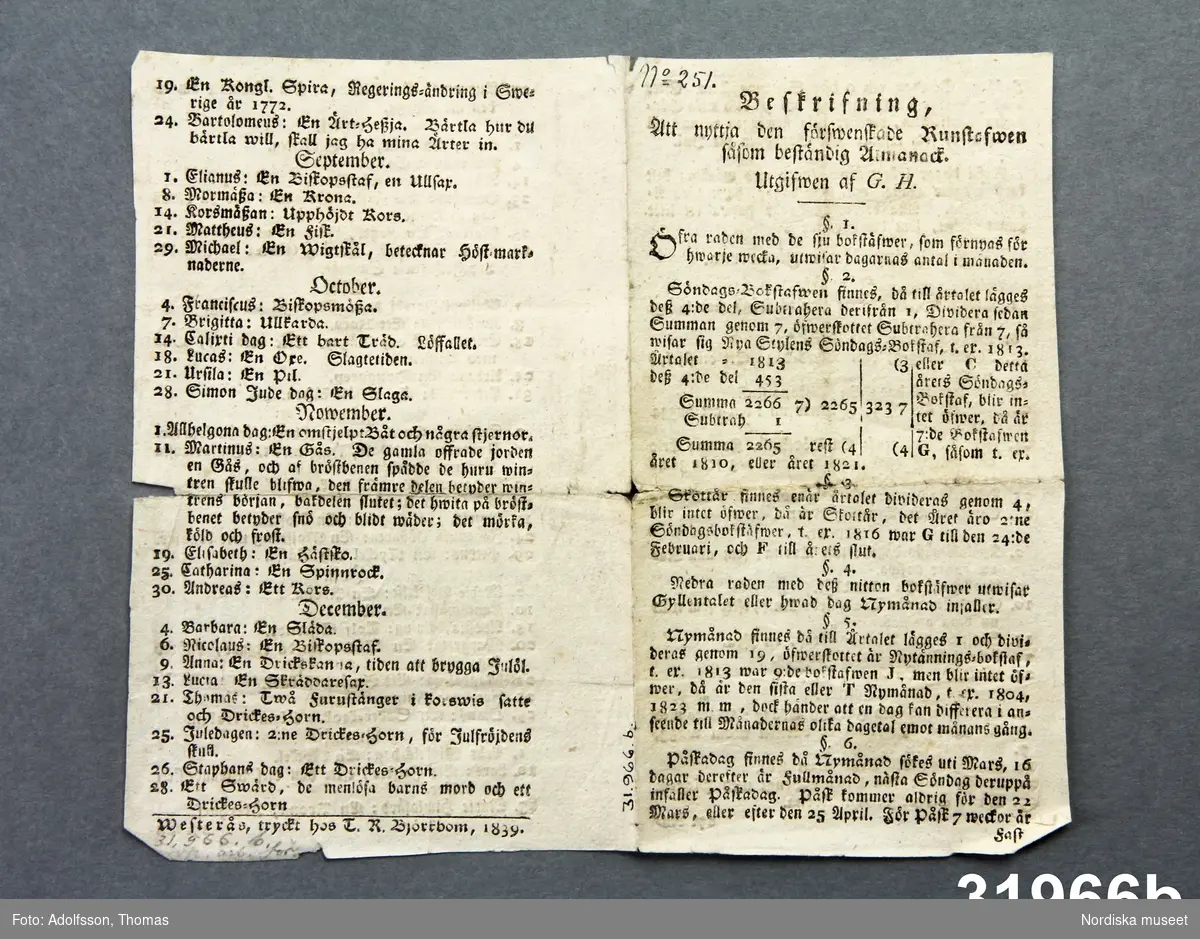 19. En Kongl. Spira, Regerings-ändring i Swe-
rige år 1772.
24. Bartolomeus: En Ärt-Heßja. Bärtla hur du
bärtla will, skall jag ha mina Ärter in.
September.
1. Elianus: En Biskopsstaf, en Ullsax.
8. Mormäßa: En Krona.
14. Korsmäßan: Upphöjdt Kors.
21. Mattheus: En Fisk.
29. Michael: En Wigtskål, betecknar Höst-mark-
naderne.
October.
4. Franciscus: Biskopsmößa.
7. Brigitta: Ullkarda.
14. Calixti dag: Ett bart Träd. Löffallet.
18. Lucas: En Oxe. Slagtetiden.
21. Ursila: En Pil.
28. Simon Jude dag: En Slaga.
Nowember.
1. Allhelgona dag: En omstjelpt Båt och några stjernor.
11. Martinus: En Gås. De gamla offrade jorden
en Gås, och af bröstbenen spådde de huru win-
tren skulle blifwa, den främre delen betyder win-
trens början, bakdelen slutet; det hwita på bröst-
benet betyder snö och blidt wäder; det mörka,
köld och frost.
19. Elisabeth: En Hästsko.
25. Catharina: En Spinnrock.
30. Andreas: Ett Kors.
December.
4. Barbara: En Släda.
6. Nicolaus: En Biskopsstaf.
9. Anna: En Drickskanna, tiden att brygga Julöl.
13. Lucia: En Skräddaresax.
21. Thomas: Twå Furustänger i korswis satte
och Drickes-Horn.
25. Juledagen: 2:ne Drickes-Horn, för Julfröjdens
skull.
26. Staphans dag: Ett Drickes-Horn.
28. Ett Swärd, de menlösa barns mord och ett
Drickes-Horn
Westerås, tryckt hos T. R. Björkbom, 1839.
31,966, b.
31.966.b.
No 251.
Beskrifning,
Att nyttja den förswenskade Runstafwen
såsom beständig Almanack.
Utgifwen af G. H.
§. 1.
Öfra raden med de sju bokstäfwer, som förnyas för
hwarje wecka, utwisar dagarnas antal i månaden.
§. 2.
Söndags-Bokstafwen finnes, då till årtalet lägges
deß 4:de del, Subtrahera derifrån 1, Dividera sedan
Summan genom 7, öfwerskottet Subtrahera från 7, så
wisar sig Nya Stylens Söndags-Bokstaf, t. ex. 1813.
Årtalet - 1813 (3 eller C detta
deß 4:de del 453 årets Söndags-
Summa 2266 7) 2265 323 7 Bokstaf, blir in-
Subtrah 1 tet öfwer, då är
7:de Bokstafwen
Summa 2265 rest (4 (4 G, såsom t. ex.
året 1810, eller året 1821.
§. 3.
Skottår finnes enär årtalet divideras genom 4,
blir intet öfwer, då är Skottår, det Året äro 2:ne
Söndagsbokstäfwer, t. ex. 1816 war G till den 24:de
Februari, och F till årets slut.
§. 4.
Nedra raden med deß nitton bokstäfwer utwisar
Gyllentalet eller hwad dag Nymånad infaller.
§. 5.
Nymånad finnes då till Årtalet lägges 1 och divi-
deras genom 19, öfwerskottet är Nytännings-bokstaf,
t. ex. 1813 war 9:de bokstafwen J, men blir intet öf-
wer, då är den sista eller T Nymånad, t. ex. 1804,
1823 m. m., dock händer att en dag kan differera i an-
seende till Månadernas olika dagetal emot månans gång.
§. 6.
Påskadag finnes då Nymånad sökes uti Mars, 16
dagar derefter är Fullmånad, nästa Söndag deruppå
infaller Påskadag. Påsk kommer aldrig för den 22
Mars, eller efter den 25 April. För Påsk 7 weckor är
Fast
31966b
Foto: Adolfsson, Thomas
Nordiska museet